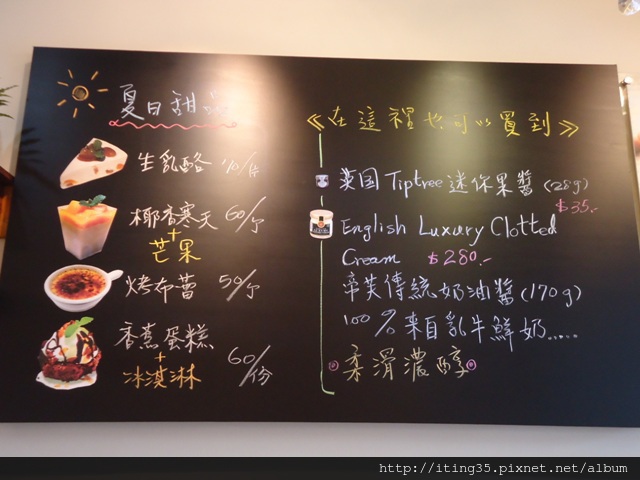 夏日甜品
生乳酪 /片
椰香寒天 60/丁
+
芒果
烤布蕾 50/丁
香蕉蛋糕
+
冰淇淋 60/份
《在這裡也可以買到》
英国 Tiptree 迷你果醬 (28g)
$35.-
English Luxury Clotted
Cream $280.-
傳統奶油醬 (170g)
100% 來自乳牛鮮奶.....
柔滑濃醇
http://iting35.pixnet.net/album